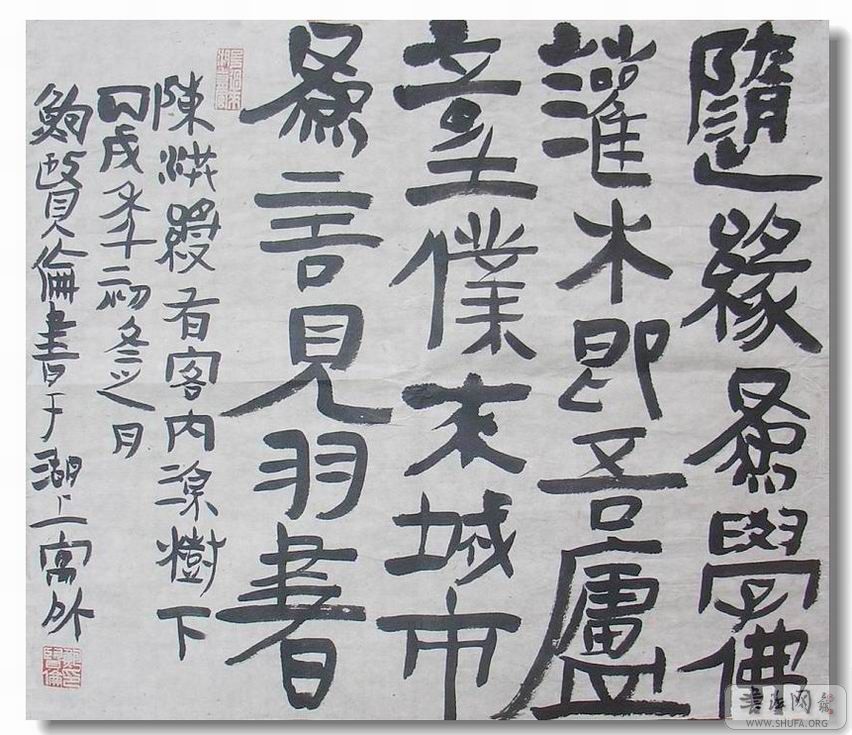 隨緣學佛
灌木即吾廬
童僕来城市
言見羽書
陳洪綬有客内涼樹下
丙戌年初冬之月
鮑賢倫書于湖上寓所
書法網
WWW.SHUFA.ORG